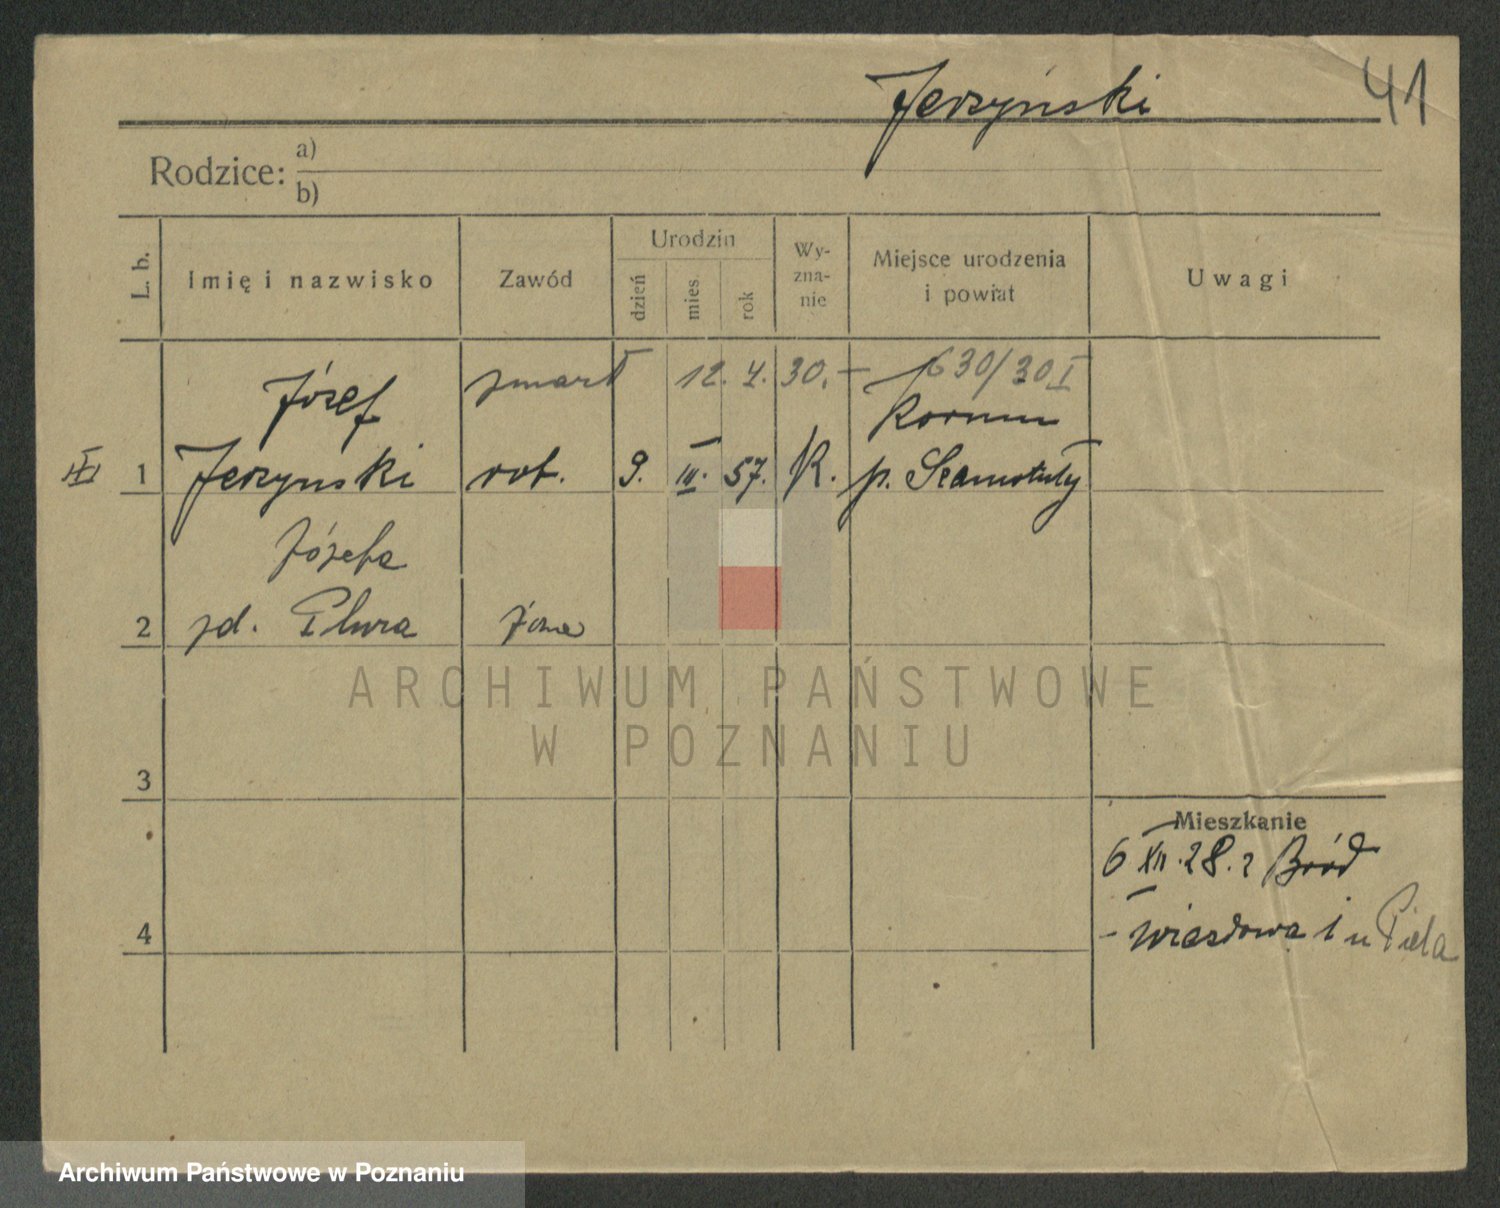 Jerzyński 41
Rodzice: a)
b)
L. b. Imię i nazwisko Zawód Urodzin dzień mies. rok Wy-zna-nie Miejsce urodzenia i powiat Uwagi
Józef zmarł 12. 4. 30. – 630/30 I
III 1 Jerzyński rob. 9. III. 57. K. p. Szamotuły
Józefa
2 zd. Plura żona
3
Mieszkanie
6 XII. 28. z Bród
4 – wiazdowa 1 u Piela
ARCHIWUM PAŃSTWOWE
W POZNANIU
Archiwum Państwowe w Poznaniu